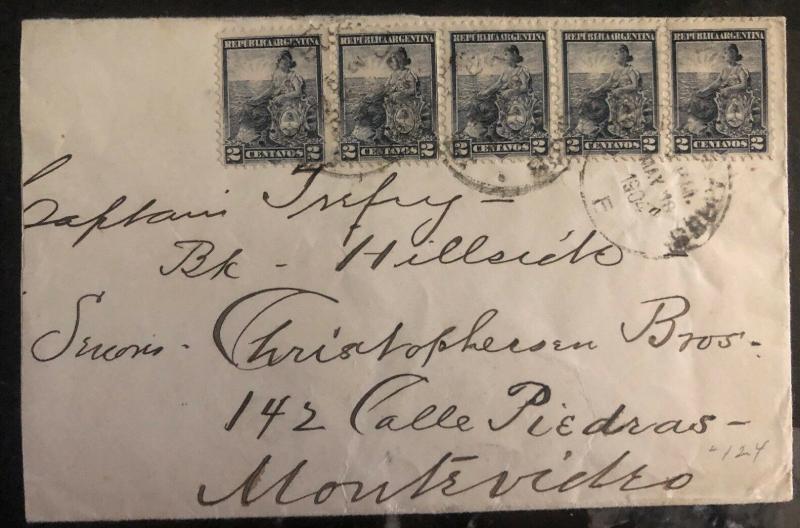 REPÚBLICA ARGENTINA REPÚBLICA ARGENTINA REPÚBLICA ARGENTINA REPÚBLICA ARGENTINA REPÚBLICA ARGENTINA
2 CENTAVOS 2 2 CENTAVOS 2 2 CENTAVOS 2 2 CENTAVOS 2 2 CENTAVOS 2
MAY 18
1904
E
Captain Trefry -
Bk - Hillside
Senores - Christophersen Bros -
142 Calle Piedras -
-124
Montevideo